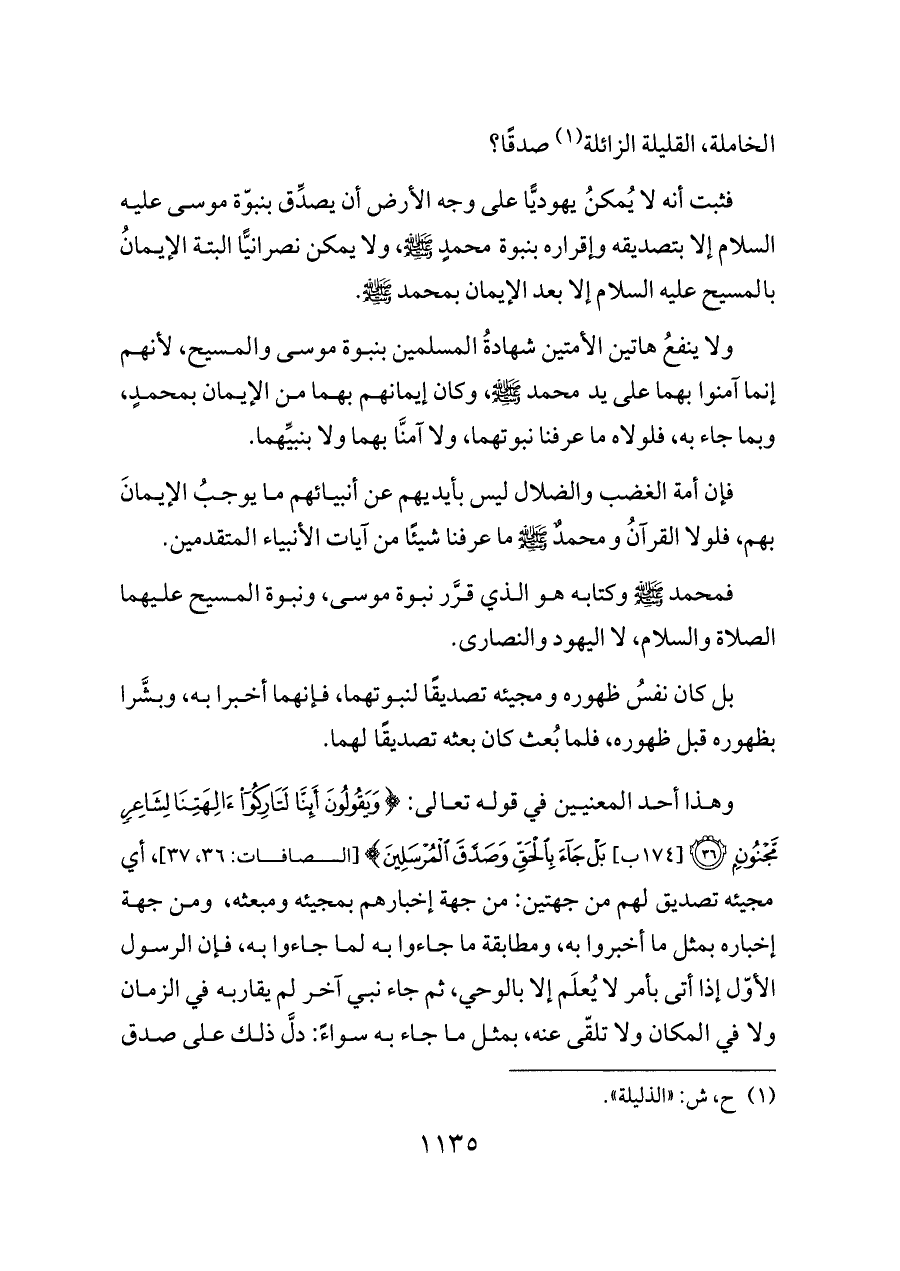 الخاملة، القليلة الزائلة(١) صدقًا؟
فثبت أنه لا يُمكنُ يهوديًّا على وجه الأرض أن يصدِّق بنبوّة موسى عليه
السلام إلا بتصديقه وإقراره بنبوة محمدٍ ﷺ، ولا يمكن نصرانيًّا البتة الإيمانُ
بالمسيح عليه السلام إلا بعد الإيمان بمحمد ﷺ.
ولا ينفعُ هاتين الأمتين شهادةُ المسلمين بنبوة موسى والمسيح، لأنهم
إنما آمنوا بهما على يد محمد ﷺ، وكان إيمانهم بهما من الإيمان بمحمدٍ،
وبما جاء به، فلولاه ما عرفنا نبوتهما، ولا آمنَّا بهما ولا بنبيِّهما.
فإن أمة الغضب والضلال ليس بأيديهم عن أنبيائهم ما يوجبُ الإيمانَ
بهم، فلولا القرآنُ ومحمدٌ ﷺ ما عرفنا شيئًا من آيات الأنبياء المتقدمين.
فمحمد ﷺ وكتابه هو الذي قرَّر نبوة موسى، ونبوة المسيح عليهما
الصلاة والسلام، لا اليهود والنصارى.
بل كان نفسُ ظهوره ومجيئه تصديقًا لنبوتهما، فإنهما أخبرا به، وبشَّرا
بظهوره قبل ظهوره، فلما بُعث كان بعثه تصديقًا لهما.
وهذا أحد المعنيين في قوله تعالى: ﴿وَيَقُولُونَ أَئِنَّا لَتَارِكُوٓا۟ ءَالِهَتِنَا لِشَاعِرٍ
مَّجْنُونٍ ۝٣٦ [١٧٤ب] بَلْ جَآءَ بِٱلْحَقِّ وَصَدَّقَ ٱلْمُرْسَلِينَ﴾ [الصافات: ٣٦، ٣٧]، أي
مجيئه تصديق لهم من جهتين: من جهة إخبارهم بمجيئه ومبعثه، ومن جهة
إخباره بمثل ما أخبروا به، ومطابقة ما جاءوا به لما جاءوا به، فإن الرسول
الأوّل إذا أتى بأمر لا يُعلَم إلا بالوحي، ثم جاء نبي آخر لم يقاربه في الزمان
ولا في المكان ولا تلقّى عنه، بمثل ما جاء به سواءً: دلَّ ذلك على صدق
(١) ح، ش: «الذليلة».
١١٣٥